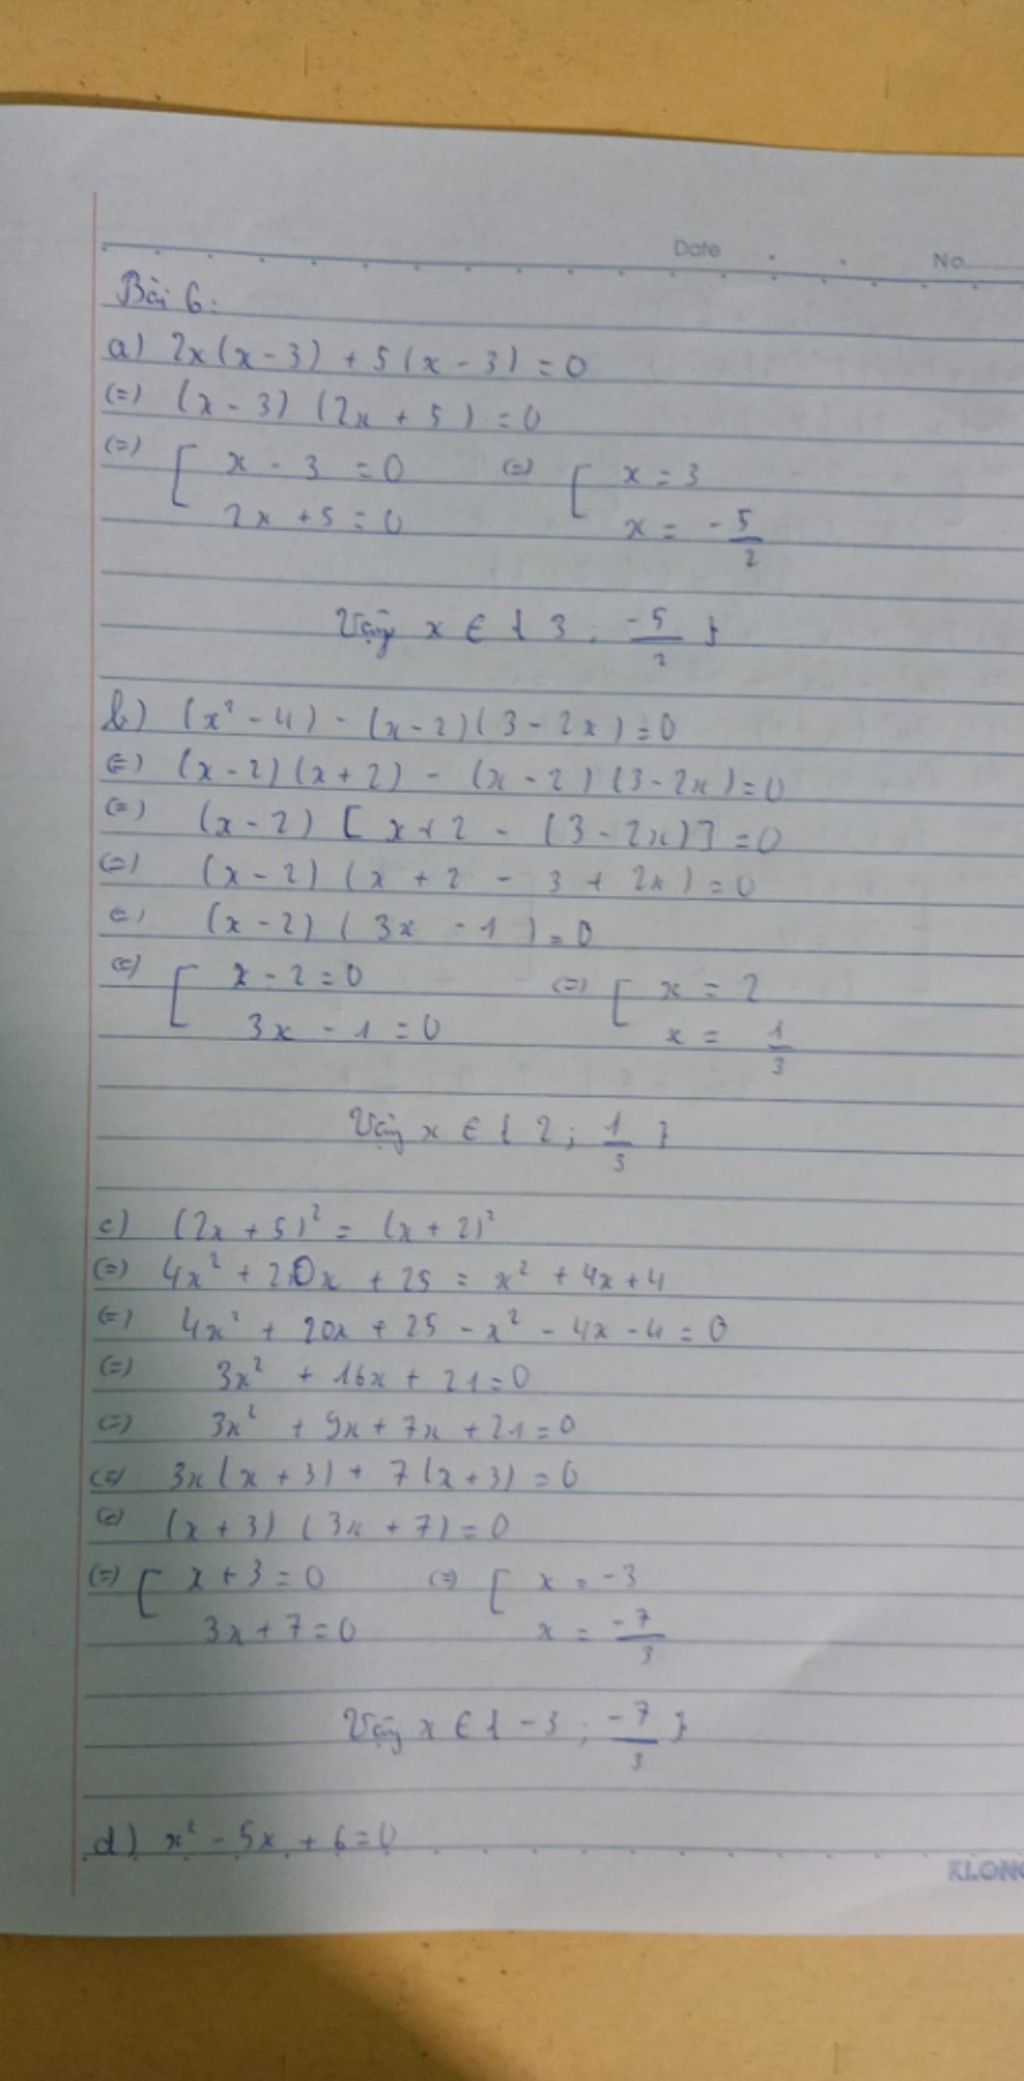 Date No
Bài 6:
a) 2x(x - 3) + 5(x - 3) = 0
(=) (x - 3) (2x + 5) = 0
(=) [ x - 3 = 0 (=) [ x = 3
2x + 5 = 0 x = -5/2
Vậy x ∈ { 3 ; -5/2 }
b) (x² - 4) - (x - 2)(3 - 2x) = 0
(=) (x - 2)(x + 2) - (x - 2)(3 - 2x) = 0
(=) (x - 2) [ x + 2 - (3 - 2x)] = 0
(=) (x - 2) (x + 2 - 3 + 2x) = 0
(=) (x - 2) (3x - 1) = 0
(=) [ x - 2 = 0 (=) [ x = 2
3x - 1 = 0 x = 1/3
Vậy x ∈ { 2 ; 1/3 }
c) (2x + 5)² = (x + 2)²
(=) 4x² + 20x + 25 = x² + 4x + 4
(=) 4x² + 20x + 25 - x² - 4x - 4 = 0
(=) 3x² + 16x + 21 = 0
(=) 3x² + 9x + 7x + 21 = 0
(=) 3x(x + 3) + 7(x + 3) = 0
(=) (x + 3) (3x + 7) = 0
(=) [ x + 3 = 0 (=) [ x = -3
3x + 7 = 0 x = -7/3
Vậy x ∈ { -3 ; -7/3 }
d) x² - 5x + 6 = 0